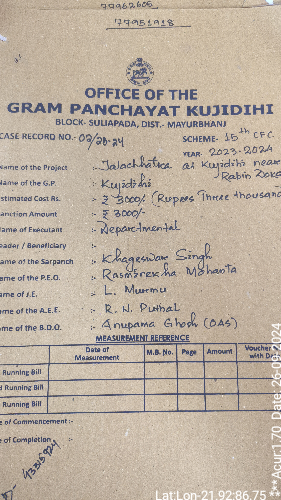 77962606
77951918
OFFICE OF THE
GRAM PANCHAYAT KUJIDIHI
BLOCK- SULIAPADA, DIST.- MAYURBHANJ
CASE RECORD NO.- 02/23-24 SCHEME- 15th CFC.
YEAR- 2023-2024
Name of the Project :- Jalachhatra at Kujidihi near
Rabin
Name of the G.P. :- Kujidihi
Estimated Cost Rs. :- ₹ 3000/- (Rupees Three thousand
Sanction Amount :- ₹ 3000/-
Name of Executant :- Departmental
Leader / Beneficiary :-
Name of the Sarpanch :- Khageswar Singh
Name of the P.E.O. :- Rasmirekha Mohanta
Name of J.E. :- L. Murmu
Name of the A.E.E. :- R. N. Puthal
Name of the B.D.O. :- Anupama Ghosh (OAS)
MEASUREMENT REFERENCE
Date of Measurement M.B. No. Page Amount Voucher with Da
Running Bill
d Running Bill
Running Bill
e of Commencement :-
e of Completion
Lat:Lon-21.92:86.75
***Acur:1.70 Date: 26-04-2024